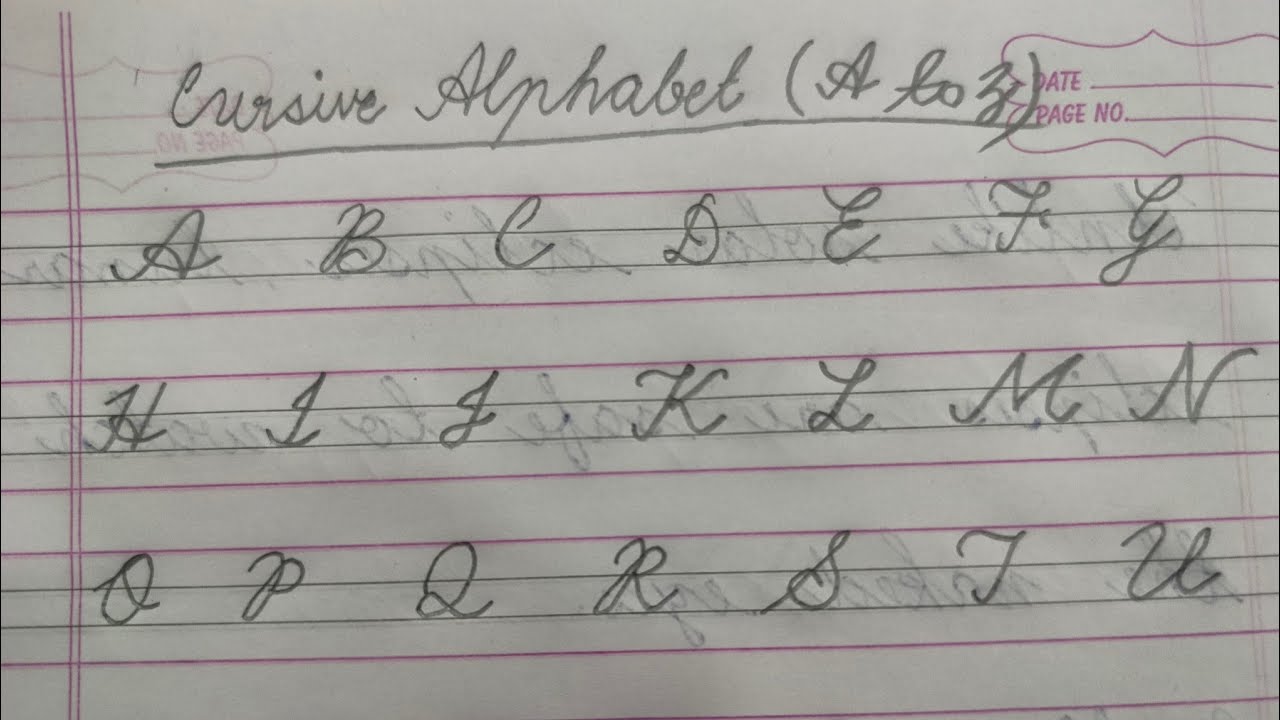 Cursive Alphabet (A to Z)
DATE
PAGE NO.
PAGE NO.
A B C D E F G
H I J K L M N
O P Q R S T U